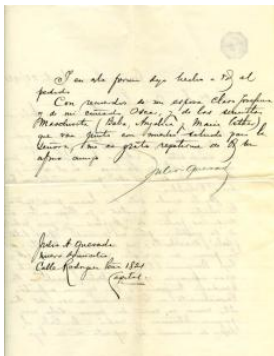 Y en esta forma dejo hecho a Vd el
pedido.
Con recuerdos de mi esposa Clara Josefina
y de mi cuñado Oscar, y de las señoritas
(Bebe, Angélica, María Esther)
que van junto con nuestro saludo para la
Señora, me es grato repetirme de Vd su
afmo amigo
Julio Quesada
Julio A Quesada
Calle Rodriguez Peña 1824
Capital